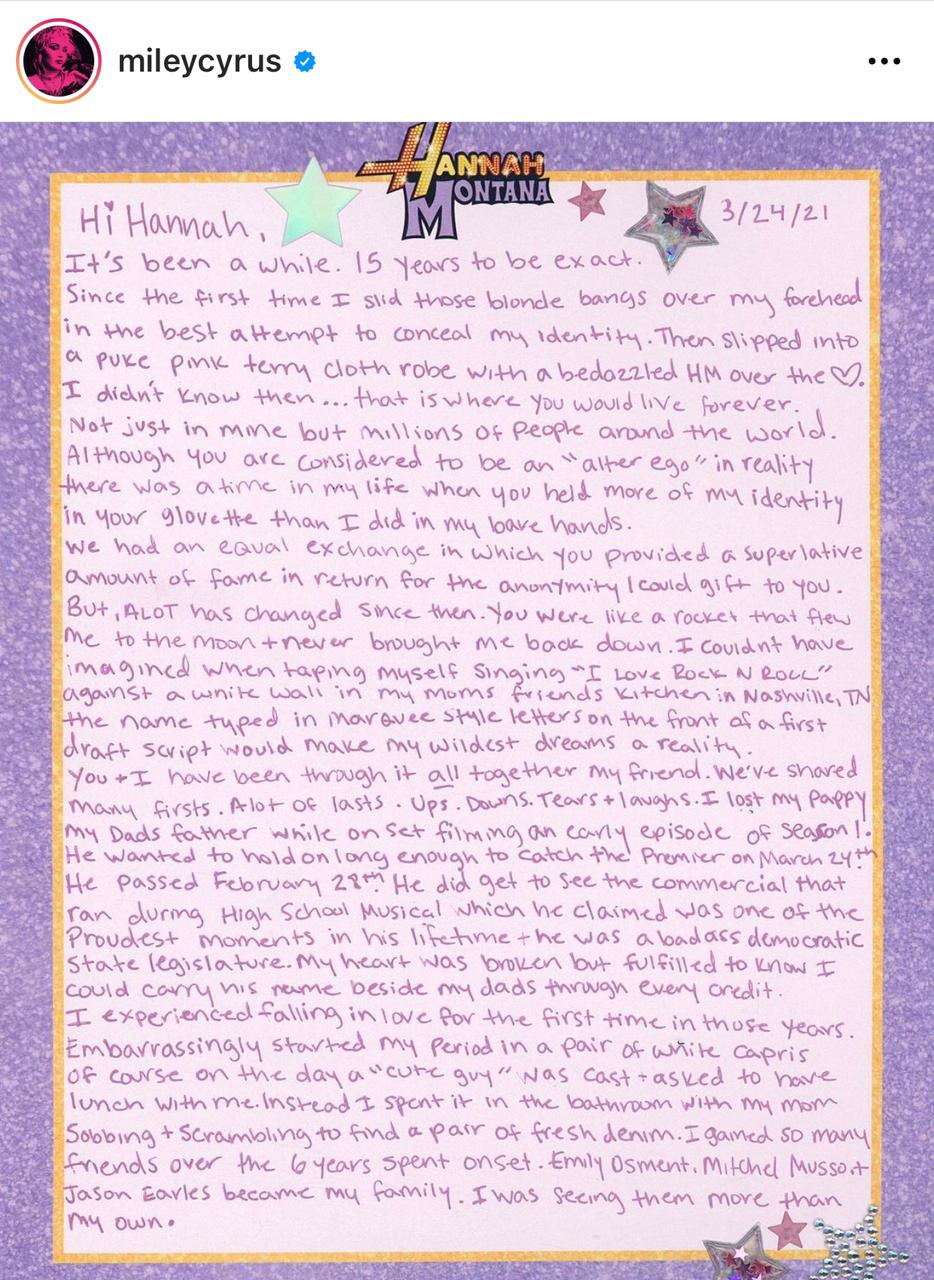 mileycyrus
HANNAH
MONTANA
Hi Hannah,
3/24/21
It's been a while. 15 years to be exact.
Since the first time I slid those blonde bangs over my forehead
in the best attempt to conceal my identity. Then slipped into
a puke pink terry cloth robe with a bedazzled HM over the ♡.
I didn't know then... that is where you would live forever.
Not just in mine but millions of people around the world.
Although you are considered to be an "alter ego" in reality
there was a time in my life when you held more of my identity
in your glovette than I did in my bare hands.
We had an equal exchange in which you provided a superlative
amount of fame in return for the anonymity I could gift to you.
But, ALOT has changed since then. You were like a rocket that flew
me to the moon + never brought me back down. I couldnt have
imagined when taping myself singing "I LOVE ROCK N ROLL"
against a white wall in my moms friends kitchen in Nashville, TN
the name typed in marquee style letters on the front of a first
draft script would make my wildest dreams a reality.
You + I have been through it all together my friend. We've shared
many firsts. Alot of lasts. Ups. Downs. Tears + laughs. I lost my pappy
my Dads father while on set filming an early episode of season 1.
He wanted to hold on long enough to catch the Premier on March 24th
He passed February 28th. He did get to see the commercial that
ran during High School Musical which he claimed was one of the
Proudest moments in his lifetime + he was a badass democratic
state legislature. My heart was broken but fulfilled to know I
could carry his name beside my dads through every credit.
I experienced falling in love for the first time in those years.
Embarrassingly started my period in a pair of white capris
of course on the day a "cute guy" was cast + asked to have
lunch with me. Instead I spent it in the bathroom with my mom
Sobbing + scrambling to find a pair of fresh denim. I gained so many
friends over the 6 years spent onset. Emily Osment, Mitchel Musso +
Jason Earles became my family. I was seeing them more than
my own.